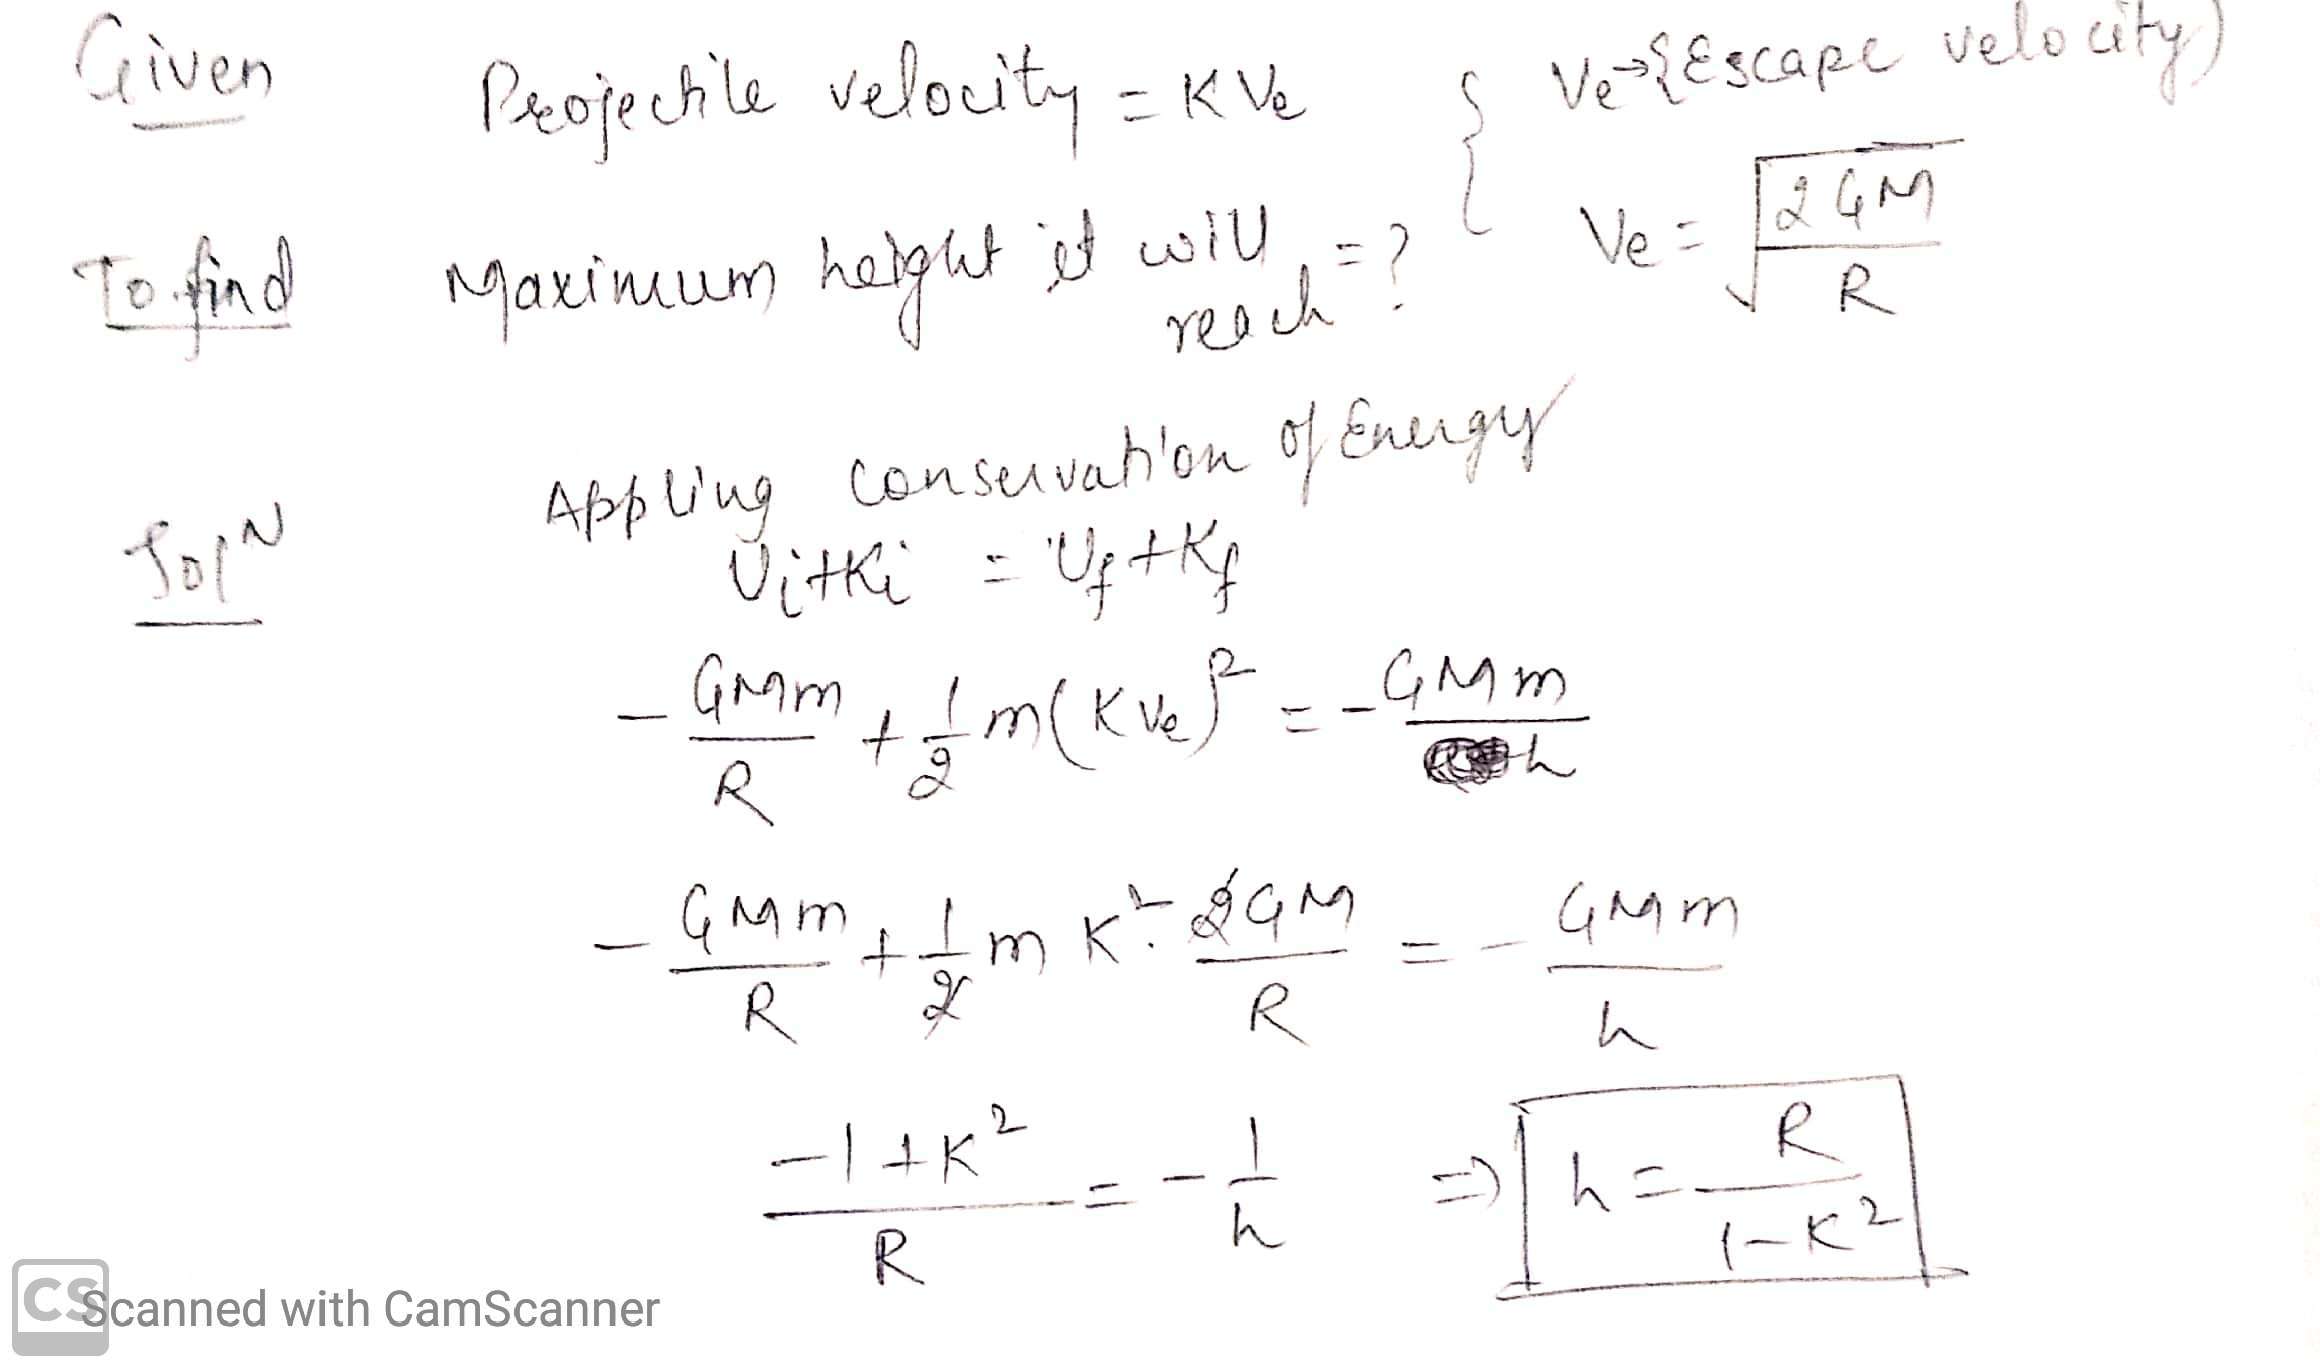 Given Projectile velocity = KVe { Ve→{Escape velocity)
To find Maximum height it will reach = ? Ve = √(2GM/R)
SolN Appling conservation of Energy
Ui+Ki = Uf+Kf
-GMm/R + 1/2 m(KVe)² = -GMm/h
-GMm/R + 1/2 m K². 2GM/R = -GMm/h
(-1+K²)/R = -1/h ⇒ h = R/(1-K²)
CS Scanned with CamScanner